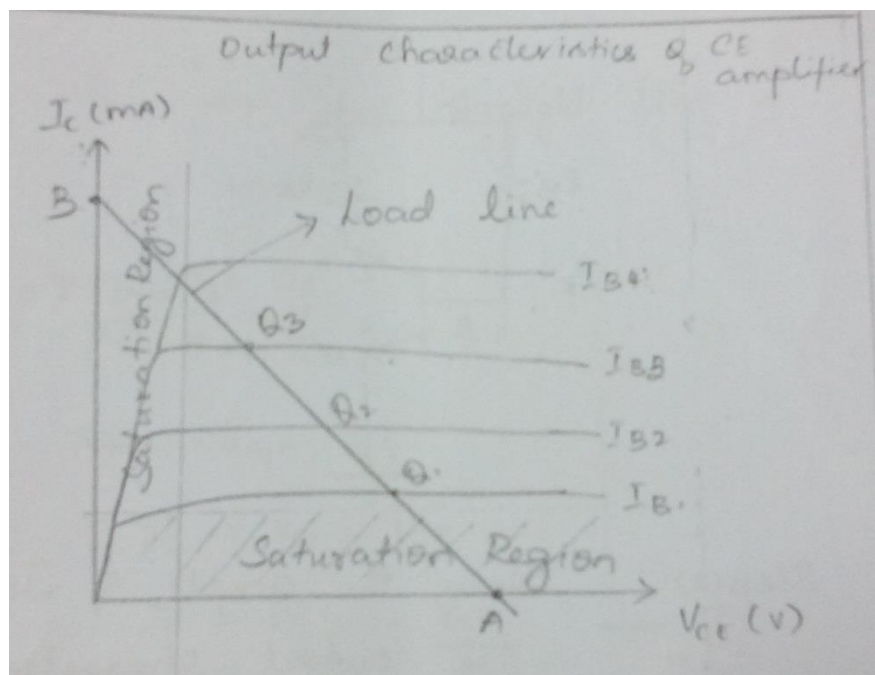 Output characteristics of CE
amplifier
Ic (mA)
B
Load line
Saturation Region
IB4
Q3
IB3
Q2
IB2
Q1
IB1
Saturation Region
A
VCE (V)